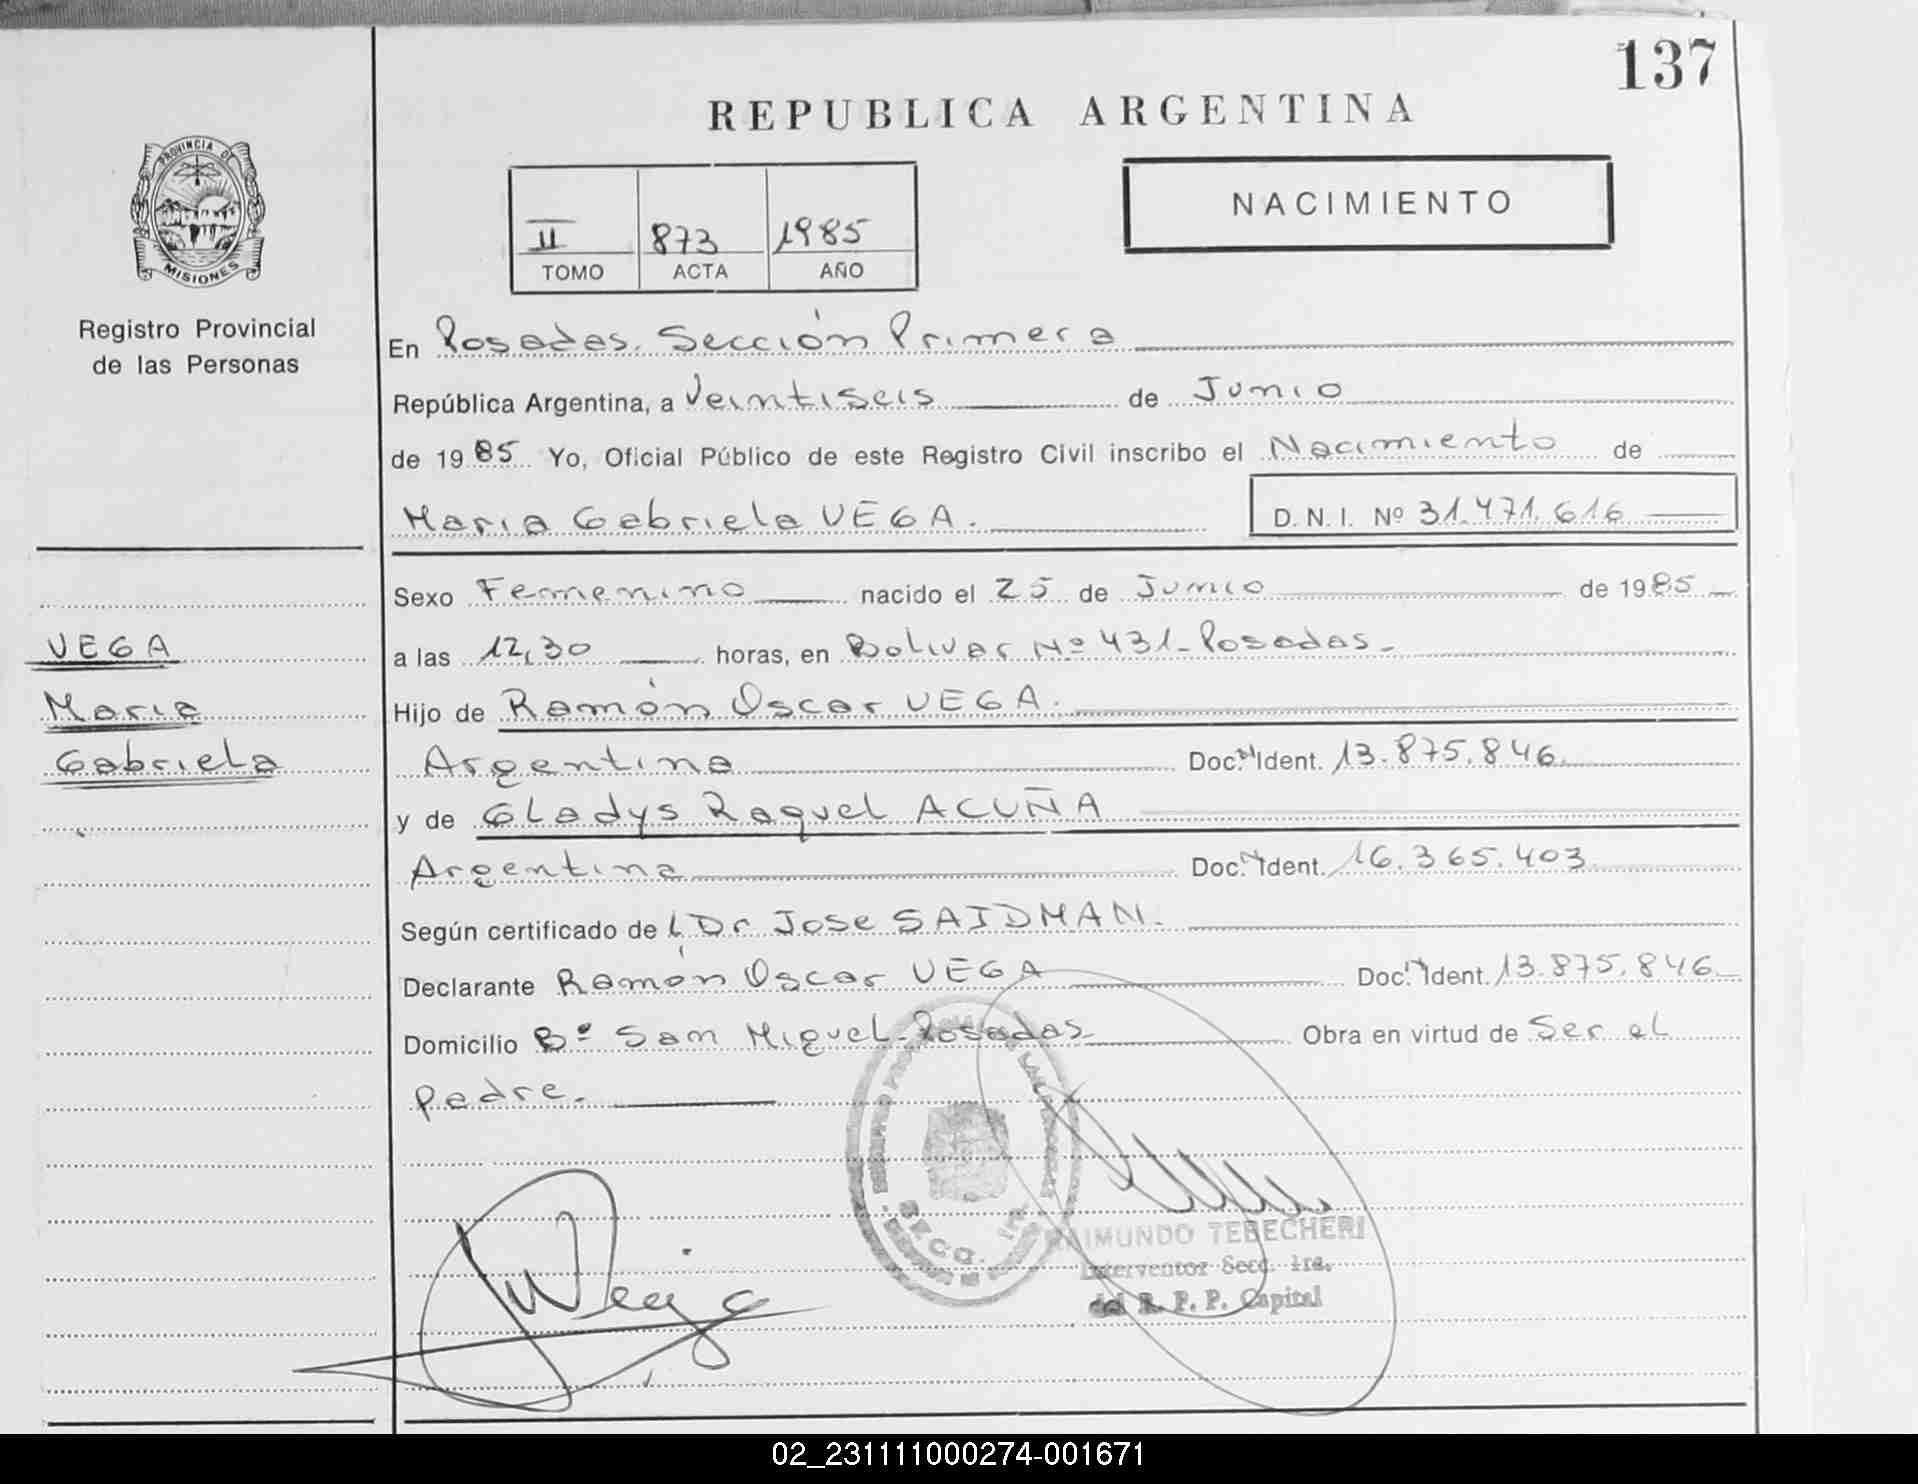 137
REPUBLICA ARGENTINA
PROVINCIA DE
MISIONES
Registro Provincial
de las Personas
NACIMIENTO
II 873 1985
TOMO ACTA AÑO
En Posadas. Sección Primera
República Argentina, a Veintiseis de Junio
de 1985 Yo, Oficial Público de este Registro Civil inscribo el Nacimiento de
Maria Gabriela VEGA. D.N.I. Nº 31.471.616
Sexo Femenino nacido el 25 de Junio de 1985
VEGA
a las 12,30 horas, en Bolivar Nº 431- Posadas.-
Maria
Hijo de Ramón Oscar VEGA.
Gabriela
Argentina Doc. Ident. 13.875.846
y de Gladys Raquel ACUÑA
Argentina Doc. Ident. 16.365.403
Según certificado de Dr Jose SAIDMAN.
Declarante Ramón Oscar VEGA Doc. Ident. 13.875.846
Domicilio Bº San Miguel- Posadas Obra en virtud de Ser el
padre.
SECC. 1ra.
Vega
RAIMUNDO TEBECHERI
Interventor Secc. 1ra.
del R. P. P. Capital
02_231111000274-001671